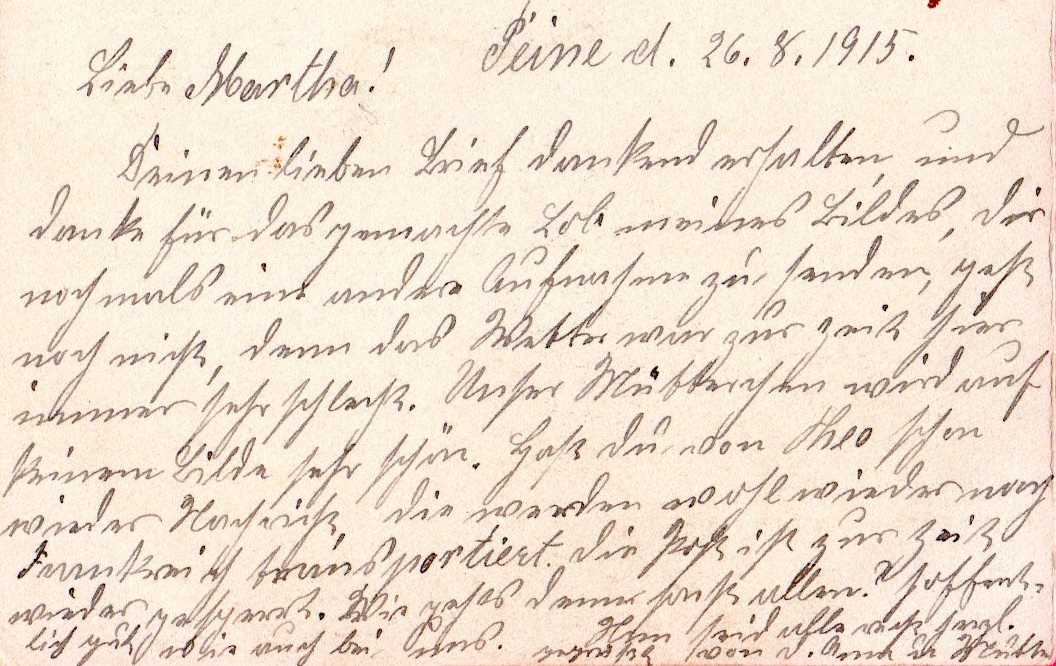 Peine d. 26.8.1915.
Liebe Martha!
Deinen lieben Brief dankend erhalten, und
danke für das gemachte Lob meines Bildes, Dir
nochmals eine andere Aufnahme zu senden, geht
noch nicht, denn das Wetter war zur zeit hier
immer sehr schlecht. Unser Mütterchen wird auf
keinem Bilde sehr schön. Hast du von Theo schon
wieder Nachricht, die werden wohl wieder nach
Frankreich transportiert. Die Post ist zur Zeit
wieder gesperrt. Wie gehts denn sonst allen? hoffent-
lich gut wie auch bei uns. Nun seid alle recht herzl.
gegrüßt von d. Anna u. Mutter